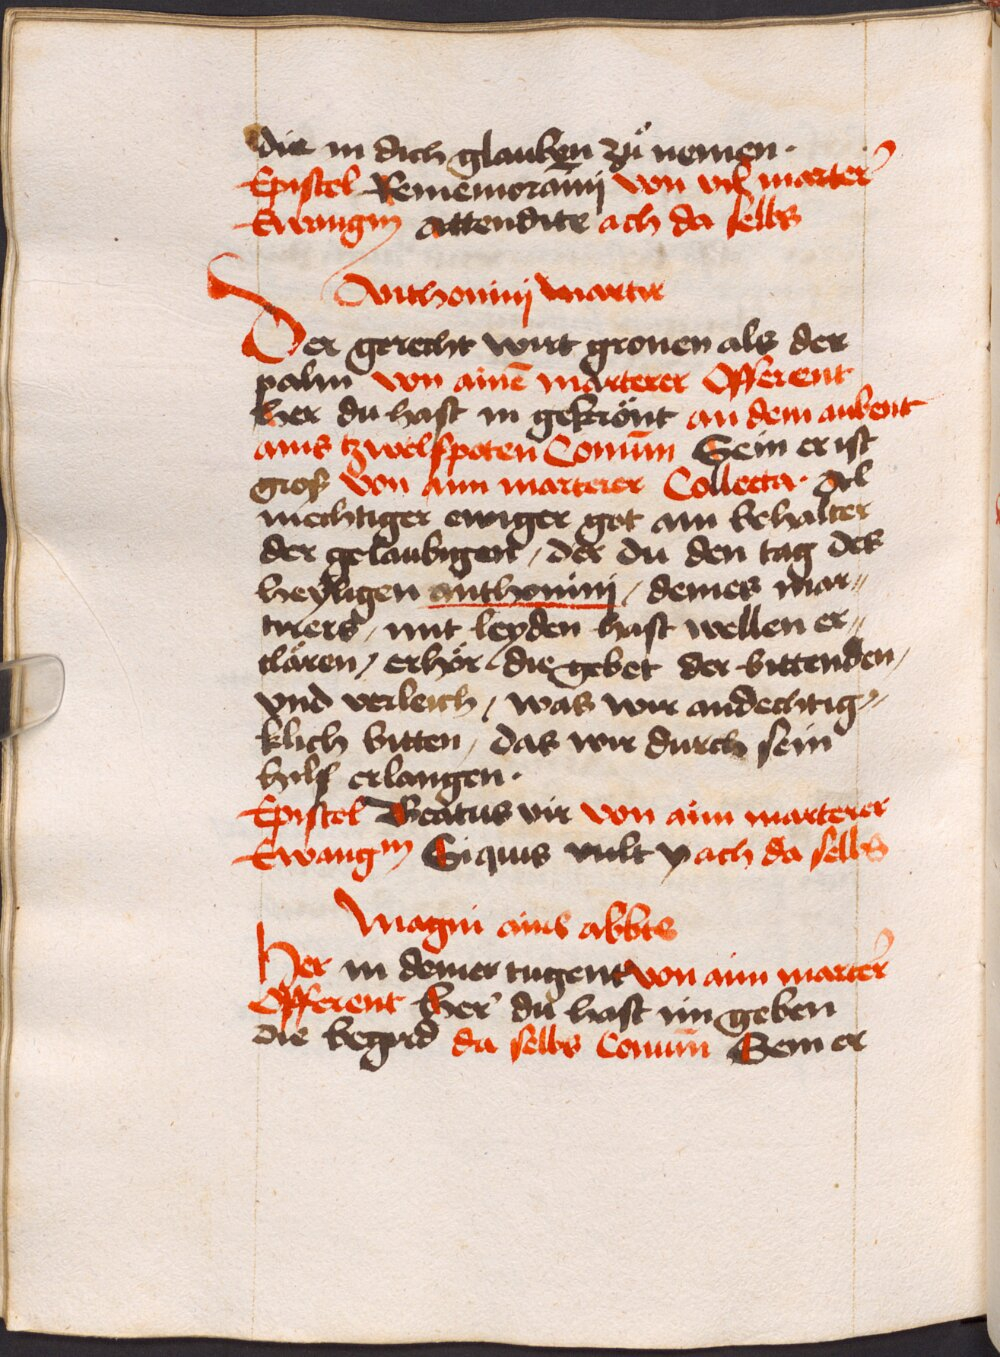 die in dich glauben zů nemen ·
Epistel Rememoramī von vil marter̄
Ewangm̄ Attendite ach da selbs
Anthonini marter
Der gerecht wirt gronen als der
palm von ainē marterer Offerent
her du hast in gekrönt an dem aubent
ains tzwelfpoten Comūn Sein er ist
gros von ain marterer Collecta · Al
mechtiger ewiger got ain behalter
der gelaubigen / der du den tag des
heyligen anthonini / deines mar⸗
tirers / mit leyden hast wellen er⸗
clären / erhör die gebet der bittenden /
vnd verleich / was wir andechtig⸗
klich bitten / das wir durch sein
hilf erlangen ·
Epistel Beatus vir von ain marterer
Ewangm̄ Siquis vult v ach da selbs
Magni ains abbts
Her in deiner tugent von ain marter̄
Offerent her du hast im geben
die begird da selbs Comūn Sein er